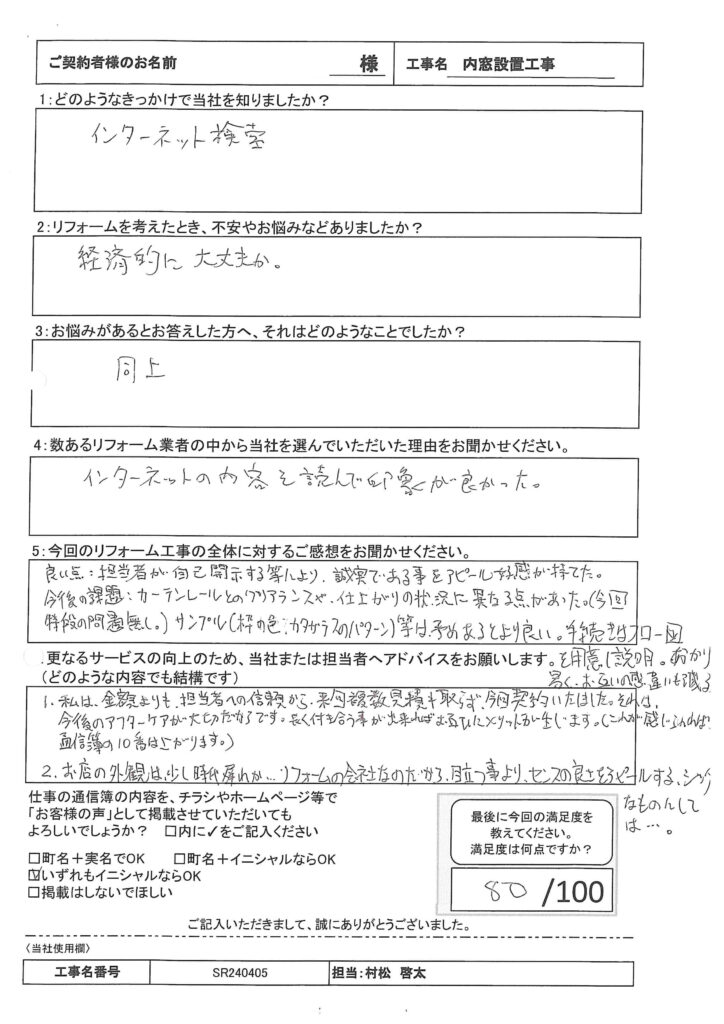 ご契約者様のお名前 様 工事名 内窓設置工事
1:どのようなきっかけで当社を知りましたか?
インターネット検索
2:リフォームを考えたとき、不安やお悩みなどありましたか?
経済的に大丈夫か。
3:お悩みがあるとお答えした方へ、それはどのようなことでしたか?
同上
4:数あるリフォーム業者の中から当社を選んでいただいた理由をお聞かせください。
インターネットの内容を読んで印象が良かった。
5:今回のリフォーム工事の全体に対するご感想をお聞かせください。
良い点:担当者が自己開示する等により、誠実である事をアピール 好感が持てた。
今後の課題:カーテンレールとのクリアランスや、仕上がりの状況に異なる点があった。(今回
特段の問題無し。)サンプル(枠の色、カタガラスのパターン)等は予めあるとより良い。手続きはフロー図
を用意し説明。わかり
易く、お互いの感違いも減る
.更なるサービスの向上のため、当社または担当者へアドバイスをお願いします。
(どのような内容でも結構です)
1. 私は、金額よりも、担当者への信頼から、来回複数見積も取らず、今回契約いたしました。それは、
今後のアフターケアが大切だからです。長く付き合う事が出来ればお互いにメリットが生じます。(これが感じられれば
通信簿の10番は上がります。)
2. お店の外観は少し時代遅れか…リフォームの会社なのだから、目立つ事より、センスの良さをアピールする、シックな
なものにしては…。
仕事の通信簿の内容を、チラシやホームページ等で
「お客様の声」として掲載させていただいても
よろしいでしょうか? □内に✓をご記入ください
□町名+実名でOK □町名+イニシャルならOK
☑いずれもイニシャルならOK
□掲載はしないでほしい
最後に今回の満足度を
教えてください。
満足度は何点ですか?
80/100
ご記入いただきまして、誠にありがとうございました。
〈当社使用欄〉
工事名番号 SR240405 担当:村松 啓太